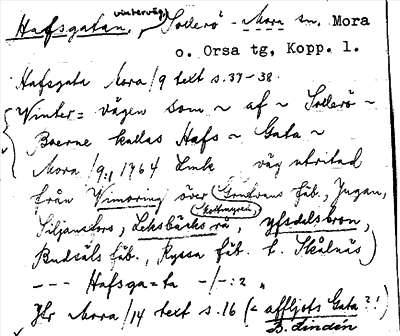 Hafsgatan, vinterväg, Sollerö - Mora sn. Mora
o. Orsa tg, Kopp. l.
Hafsgata Mora/9 text s. 37-38.
Winter = vägen som ~ af ~ Sollerö ~
Boerne kallas Hafs ~ Gata ~
Mora/9, 1764 Link väg utritad
från Vimoring över Gruvans fäb., Jugan,
Siljansfors, Leksbäcks rå,
Budsäls fäb., Ryssa fäb. t. Skålnäs)
--- Hafsga=ta -/-:2 "
Jfr Mora/14 text s. 16 (= affljots Gata?!)
B. Lindén